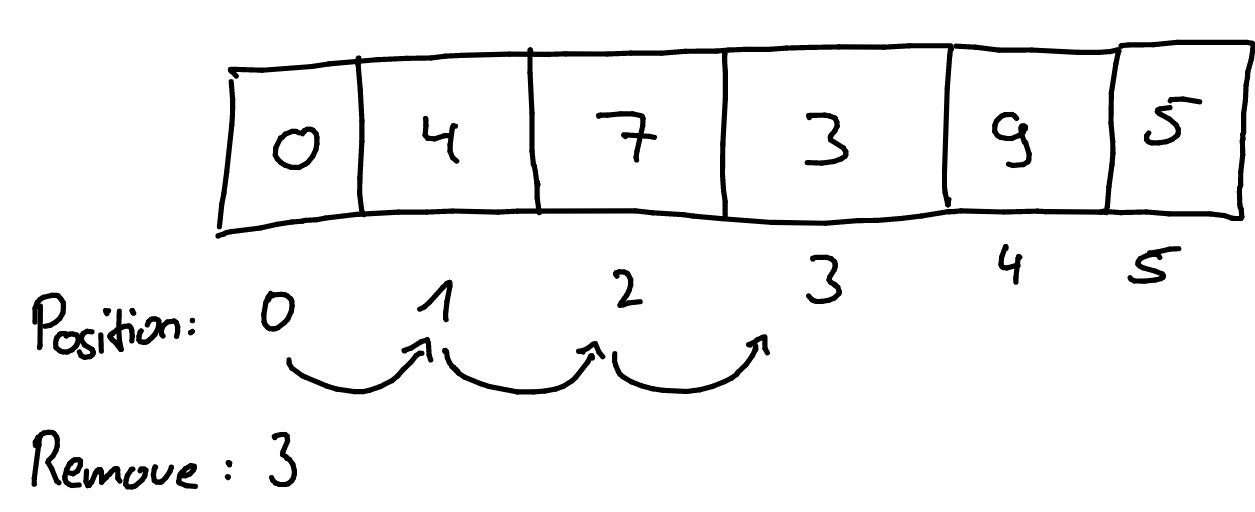 0 4 7 3 9 5
Position: 0 1 2 3 4 5
Remove: 3